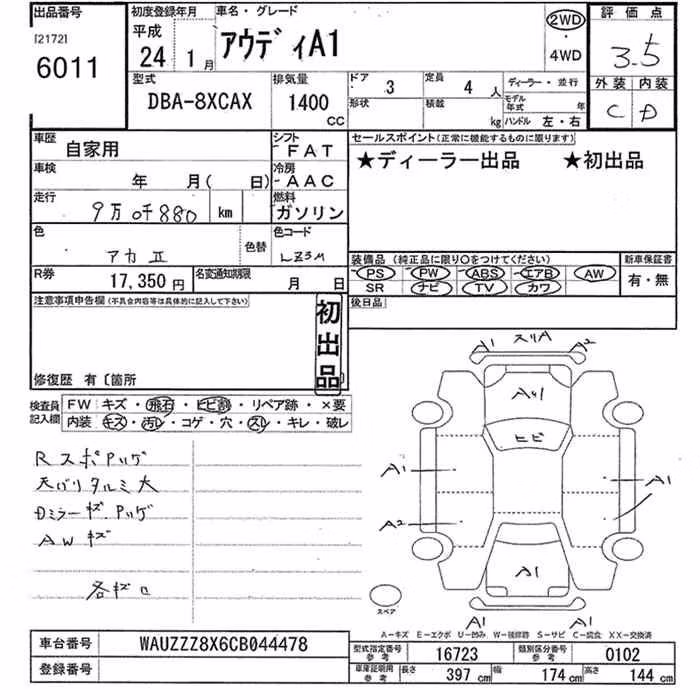 出品番号 初度登録年月 車名・グレード 評価点
[2172] 平成
6011 24年 1月 アウディA1 2WD・4WD 3.5
型式 排気量 ドア 3 定員 4人 ディーラー・並行 外装 内装
DBA-8XCAX 1400cc 形状 積載 kg モデル年式 年 ハンドル 左・右 C D
車歴 自家用 シフト FAT セールスポイント(正常に機能するものに限ります)
車検 年 月( 日) 冷房 AAC ★ディーラー出品 ★初出品
走行 9万0千880 km 燃料 ガソリン
色 アカⅡ 色替 色コード LZ3M
装備品(純正品に限り○をつけてください) 新車保証書
PS PW ABS エアB AW 有・無
SR ナビ TV カワ
R券 17,350円 名変通知期限 月 日
後日品
注意事項申告欄(不具合内容等は具体的に記入して下さい)
初出品
修復歴 有〔箇所
検査員記入欄 FW キズ・飛石・ヒビ割・リペア跡・×要
内装 キズ・汚レ・コゲ・穴・スレ・キレ・破レ
RスポPハゲ
天バリタルミ大
Dミラーキズ、Pハゲ
AWキズ
各キズロ
A1 スリA A2
Aツ1
ヒビ
A1 A1
A2
A1
A1 A1
スペア
A-キズ E-エクボ U-凹み W-補修跡 S-サビ C-腐食 XX-交換済
車台番号 WAUZZZ8X6CB044478 型式指定番号 参考 16723 類別区分番号 参考 0102
登録番号 車庫証明用 参考 長さ 397cm 幅 174cm 高さ 144cm